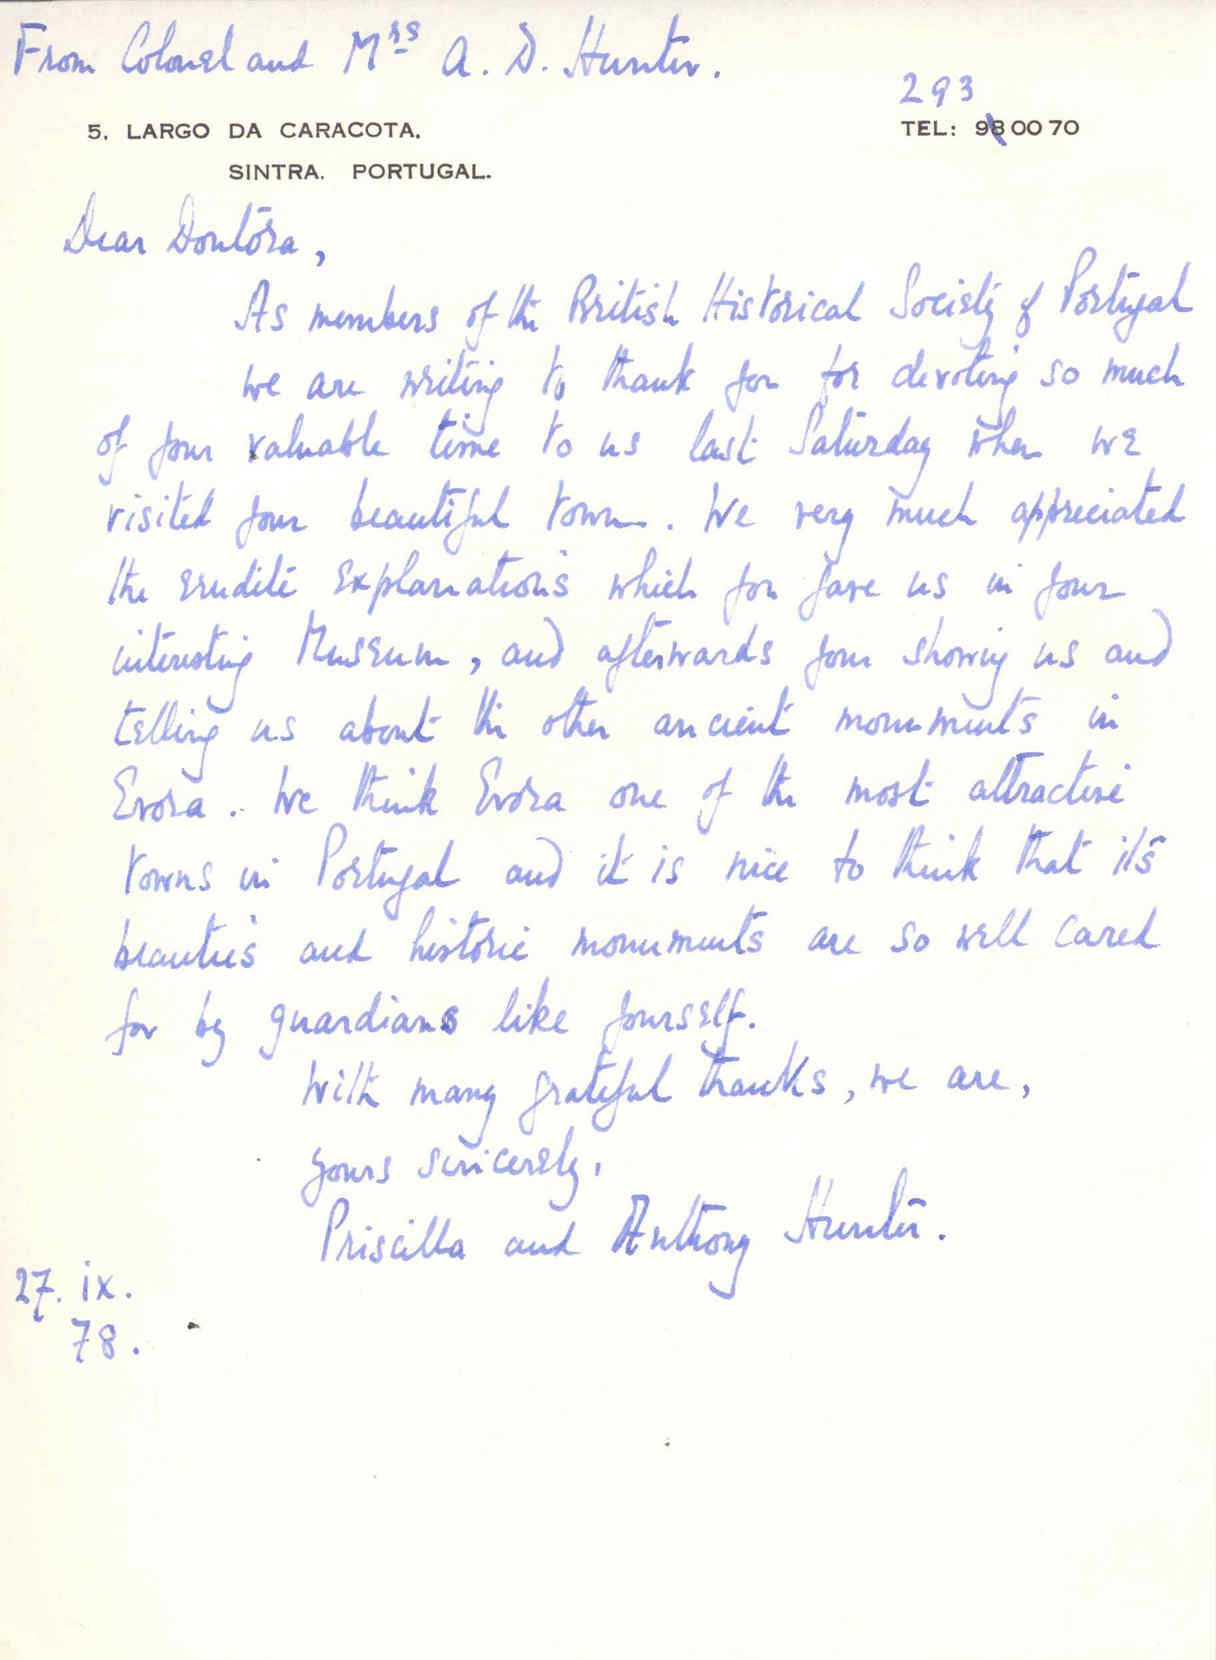 From Colonel and Mrs A. D. Hunter.
293
5, LARGO DA CARACOTA. TEL: 98 00 70
SINTRA. PORTUGAL.
Dear Doutôra,
As members of the British Historical Society of Portugal
we are writing to thank you for devoting so much
of your valuable time to us last Saturday when we
visited your beautiful town. We very much appreciated
the erudite explanations which you gave us in your
interesting Museum, and afterwards your showing us and
telling us about the other ancient monuments in
Evora. We think Evora one of the most attractive
towns in Portugal and it is nice to think that its
beauties and historic monuments are so well cared
for by guardians like yourself.
With many grateful thanks, we are,
yours sincerely,
Priscilla and Anthony Hunter.
27. ix.
78.